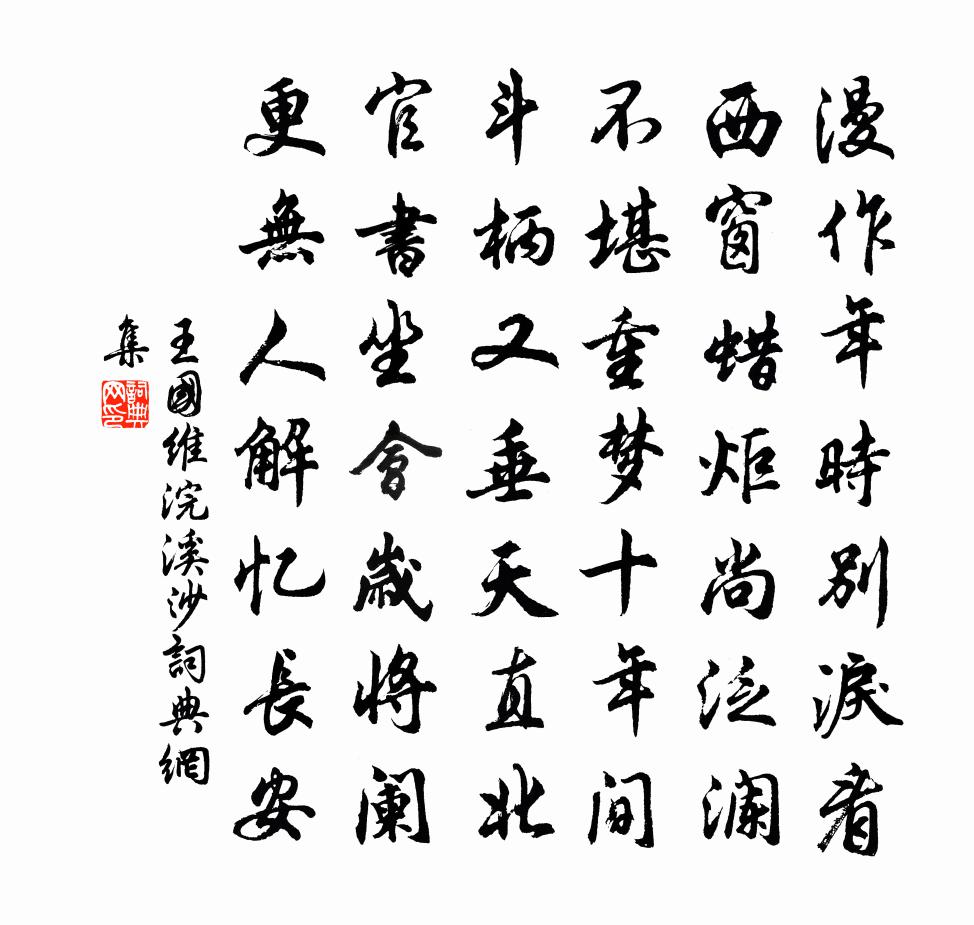 漫作年時别淚看
西窗蜡炬尚泛澜
不堪重梦十年间
斗柄又垂天直北
官書坐會歲将阑
更無人解忆長安
王國维浣溪沙詞典網
集
詞典网印